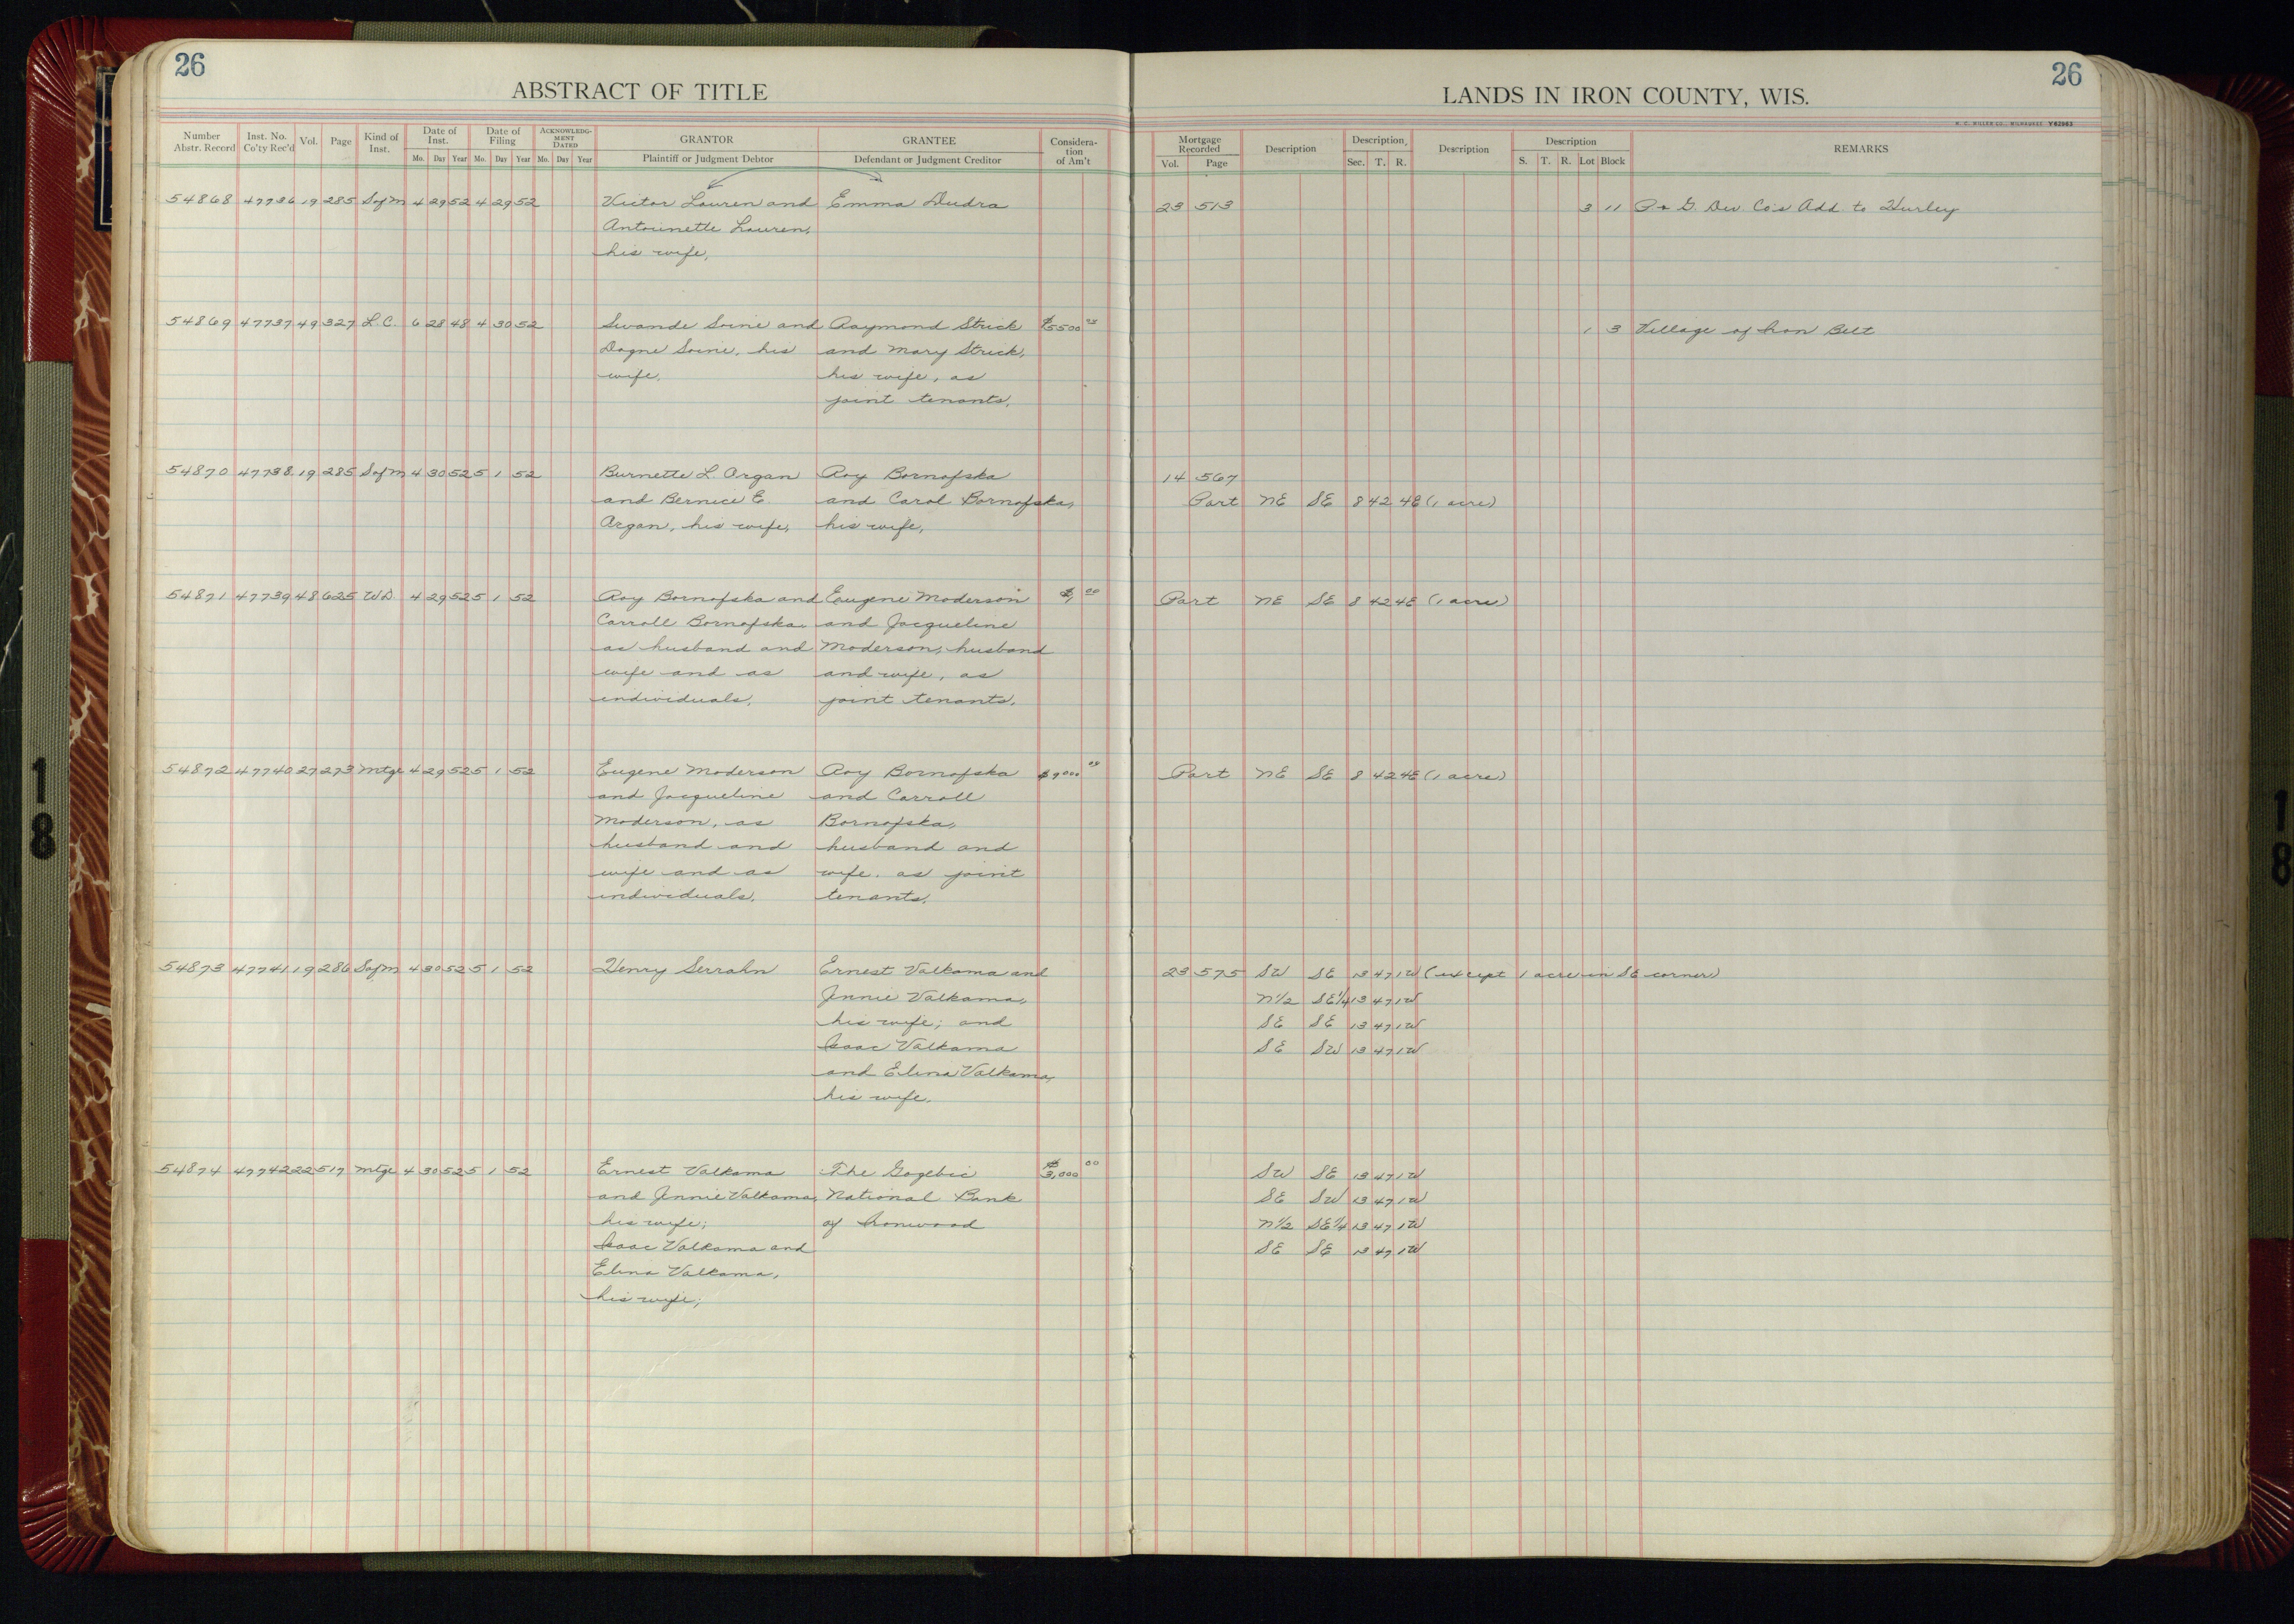 26
26
ABSTRACT OF TITLE
LANDS IN IRON COUNTY, WIS.
H. C. MILLER CO., MILWAUKEE Y62963
Number Abstr. Record Inst. No. Co'ty Rec'd Vol. Page Kind of Inst. Date of Inst. Mo. Day Year Date of Filing Mo. Day Year ACKNOWLEDG-MENT DATED Mo. Day Year GRANTOR Plaintiff or Judgment Debtor GRANTEE Defendant or Judgment Creditor Considera-tion of Am't Mortgage Recorded Vol. Page Description Description Sec. T. R. Description Description S. T. R. Lot Block REMARKS
54868 47736 19 285 Sofm 4 29 52 4 29 52 Victor Lauren and Emma Dudra 23 513 3 11 P. & G. Dev. Co's Add. to Hurley
Antoinette Lauren,
his wife,
54869 47737 49 327 L.C. 6 28 48 4 30 52 Swande Soine and Raymond Strick $5500 00 1 3 Village of Iron Belt
Dagne Soine, his and Mary Strick,
wife, his wife, as
joint tenants,
54870 47738 19 285 Sofm 4 30 52 5 1 52 Burnette L. Organ Roy Bornofska 14 567
and Bernice E. and Carol Bornofska, Part NE SE 8 42 4E (1 acre)
Argan, his wife, his wife,
54871 47739 48 625 W.D. 4 29 52 5 1 52 Roy Bornofska and Eugene Moderson $1 00 Part NE SE 8 42 4E (1 acre)
Carroll Bornofska and Jacqueline
as husband and Moderson, husband
wife and as and wife, as
individuals, joint tenants,
54872 47740 27 273 Mtge 4 29 52 5 1 52 Eugene Moderson Roy Bornofska $9000 00 Part NE SE 8 42 4E (1 acre)
and Jacqueline and Carroll
Moderson, as Bornofska,
husband and husband and
wife and as wife, as joint
individuals, tenants,
54873 47741 19 286 Sofm 4 30 52 5 1 52 Henry Serrahn Ernest Valkama and 23 575 SW SE 13 47 1W (except 1 acre in SE corner)
Jennie Valkama, N1/2 SE1/4 13 47 1W
his wife; and SE SE 13 47 1W
Isaac Valkama SE SW 13 47 1W
and Elina Valkama,
his wife,
54874 47742 22 517 Mtge 4 30 52 5 1 52 Ernest Valkama The Gogebic $3,000 00 SW SE 13 47 1W
and Jennie Valkama, National Bank SE SW 13 47 1W
his wife; of Ironwood N1/2 SE1/4 13 47 1W
Isaac Valkama and SE SE 13 47 1W
Elina Valkama,
his wife;
18
18